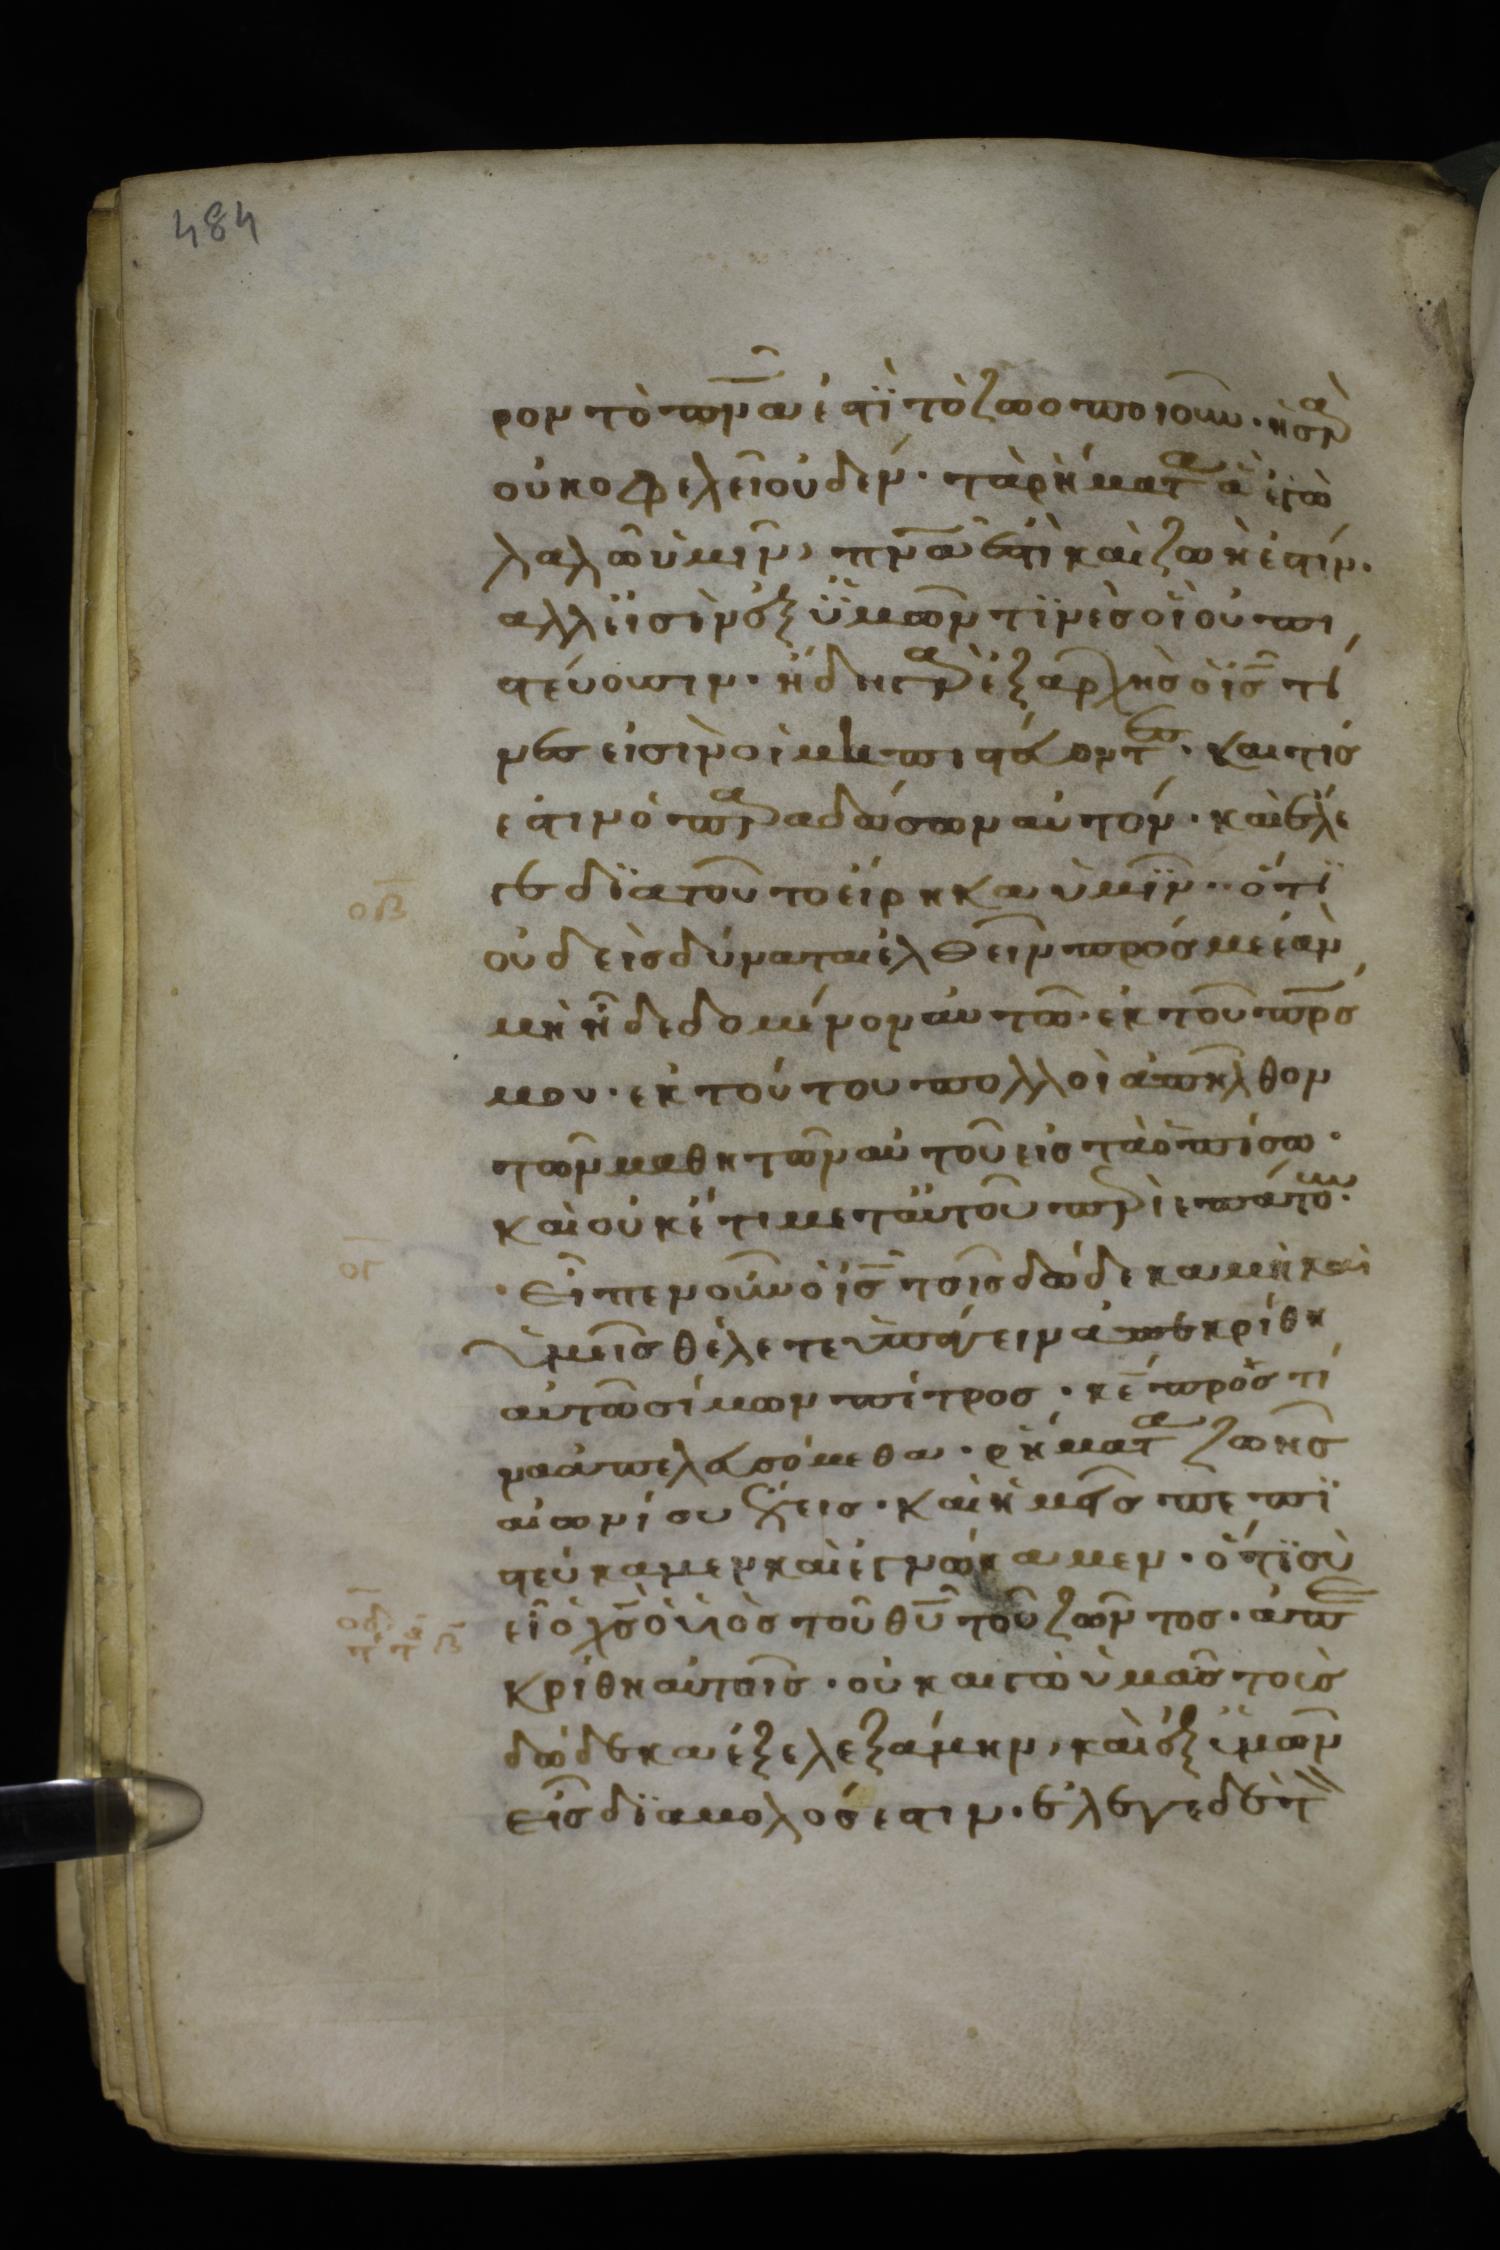 484
ρον τὸ πν̅α ἐστὶ τὸ ζωοποιοῦν · ἡ σὰρ
οὐκ οφελεῖ οὐδέν · τὰ ρήματα ἃ ἐγὼ
λαλῶ ὑμῖν, πν̅α ἐστὶ καὶ ζωὴ ἐστίν ·
αλλ εἰσὶν ἐξ ὑμῶν τινὲς οἳ οὐ πι
στεύουσιν · ἤδη γὰρ ἐξ αρχῆς ὁ ις̅ τί
νες εἰσὶν οἱ μὴ πιστεύοντες · και τίς
ἐστιν ὁ παραδώσων αὐτόν · καὶ ἔλε
οβ̅
γε διατοῦτο εἴρηκα ὑμῖν · ὅτι
οὐδεὶς δύναται ἐλθεῖν πρός με ἐὰν
μὴ ἦ δεδομένον αὐτῶ · ἐκ τοῦ πρ̅ς
μου · ἐκ τούτου πολλοὶ ἀπῆλθον
τῶν μαθητῶν αὐτοῦ εἰς τὰ ὀπίσω ·
καὶ οὐκέτι μετ αὐτοῦ περιεπάτουν ·
ογ̅
· Εἶπεν οὖν ὁ ις̅ τοῖς δώδεκα μὴ καὶ
ὑμεῖς θέλετε ὑπάγειν ἀπεκρίθη
αὐτῶ σίμων πέτρος · κε̅ πρὸς τί
να ἀπελευσόμεθα · ρήματα ζωῆς
αἰωνίου ἔχεις · καὶ ἡμεῖς πεπι
στεύκαμεν καὶ ἐγνώκαμεν · ὅτι σὺ
οδ̅
εἶ ὁ χς̅ ὁ υἱὸς τοῦ θυ̅ τοῦ ζῶντος · ἀπε
κρίθη αὐτοῖς · οὐκ αιγὼ ὑμᾶς τοὺς
δώδεκα ἐξελεξάμην, καὶ ἐξ ὑμῶν
εἷς διαμολός ἐστιν · ἔλεγε δὲ τὸν